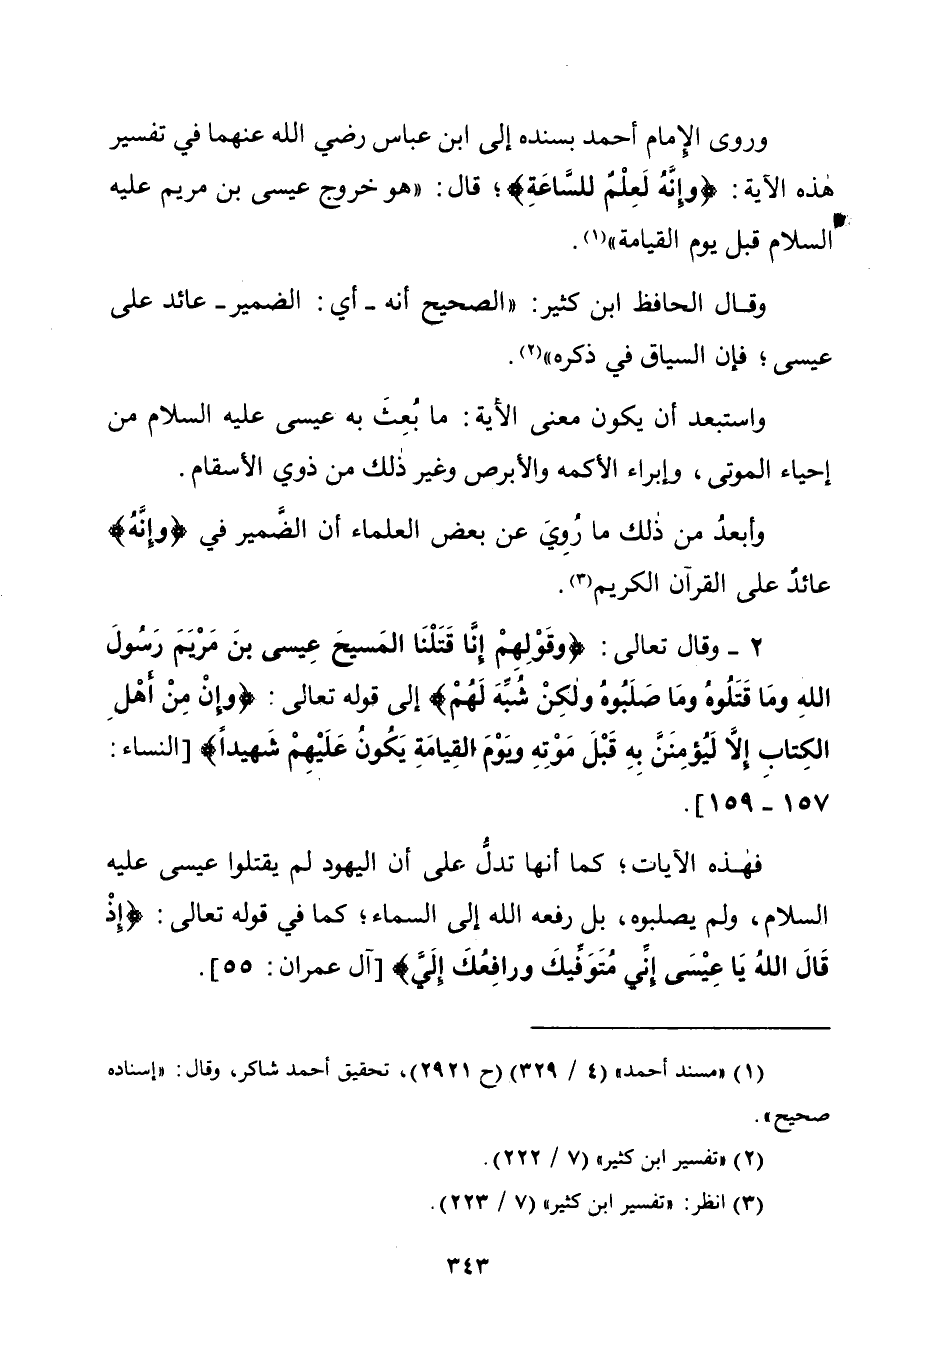 وروى الإمام أحمد بسنده إلى ابن عباس رضي الله عنهما في تفسير
هٰذه الآية: ﴿وإِنَّهُ لَعِلْمٌ للسَّاعَةِ﴾؛ قال: «هو خروج عيسى بن مريم عليه
السلام قبل يوم القيامة»(١).
وقال الحافظ ابن كثير: «الصحيح أنه ـ أي: الضمير ـ عائد على
عيسى؛ فإن السياق في ذكره»(٢).
واستبعد أن يكون معنى الأية: ما بُعِثَ به عيسى عليه السلام من
إحياء الموتى، وإبراء الأكمه والأبرص وغير ذٰلك من ذوي الأسقام.
وأبعدُ من ذٰلك ما رُوِيَ عن بعض العلماء أن الضَّمير في ﴿وإِنَّهُ﴾
عائدٌ على القرآن الكريم(٣).
٢ ـ وقال تعالى: ﴿وقَوْلِهِمْ إِنَّا قَتَلْنَا المَسيحَ عِيسى بنَ مَرْيَمَ رَسُولَ
اللهِ ومَا قَتَلُوهُ ومَا صَلَبُوهُ ولٰكِنْ شُبِّهَ لَهُمْ﴾ إلى قوله تعالى: ﴿وإِنْ مِنْ أَهْلِ
الكِتابِ إِلَّا لَيُؤمِنَنَّ بِهِ قَبْلَ مَوْتِهِ ويَوْمَ القِيامَةِ يَكُونُ عَلَيْهِمْ شَهيداً﴾ [النساء:
١٥٧ ـ ١٥٩].
فهٰذه الآيات؛ كما أنها تدلُّ على أن اليهود لم يقتلوا عيسى عليه
السلام، ولم يصلبوه، بل رفعه الله إلى السماء؛ كما في قوله تعالى: ﴿إِذْ
قَالَ اللهُ يَا عِيْسَى إِنِّي مُتَوَفِّيكَ ورافِعُكَ إِلَيَّ﴾ [آل عمران: ٥٥].
(١) «مسند أحمد» (٤ / ٣٢٩) (ح ٢٩٢١)، تحقيق أحمد شاكر، وقال: «إسناده
صحيح».
(٢) «تفسير ابن كثير» (٧ / ٢٢٢).
(٣) انظر: «تفسير ابن كثير» (٧ / ٢٢٣).
٣٤٣